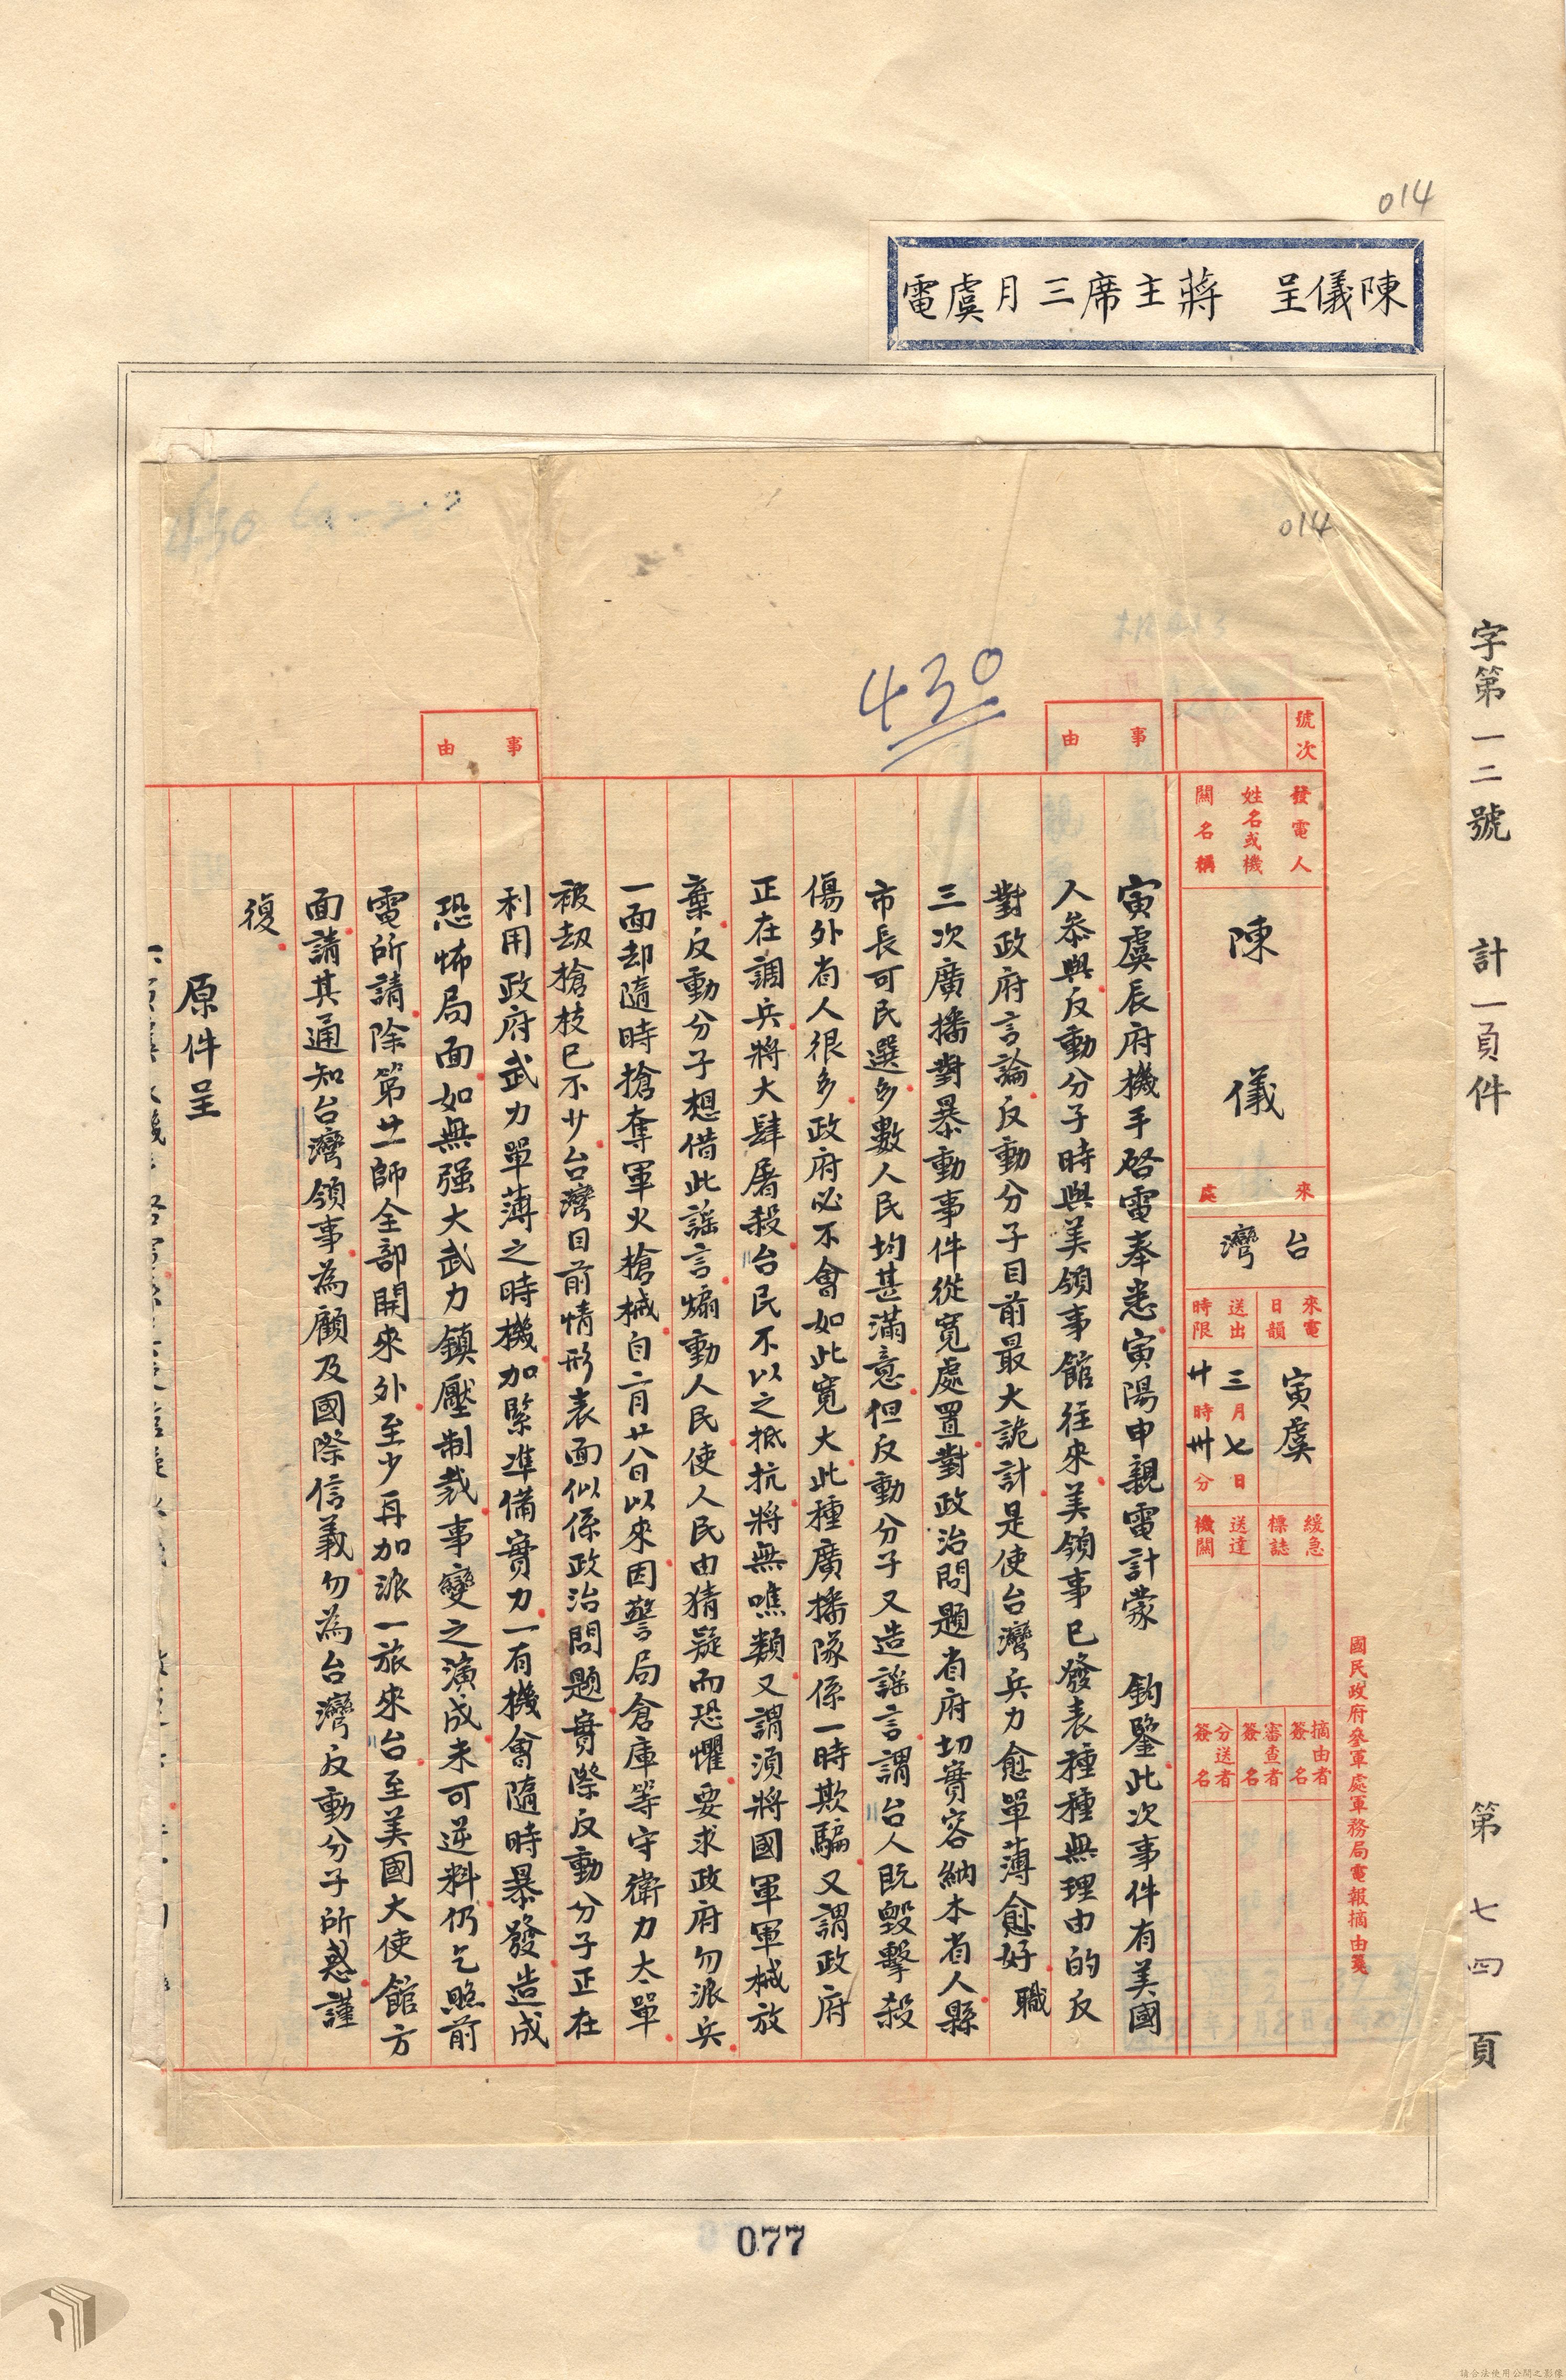 014
陳儀呈　蔣主席三月虞電
字第一二號　計一頁件　第七四頁
014
430
號次
事由
事由
發電人姓名或機關名稱
陳儀
來處
台灣
來電日韻
寅虞
送出時限
三月七日
廿時卅分
緩急標誌
送達機關
摘由者簽名
審查者簽名
分送者簽名
國民政府參軍處軍務局電報摘由箋
寅虞辰府機手啓電奉悉寅陽申親電計蒙　鈞鑒此次事件有美國
人參與反動分子時與美領事館往來美領事已發表種種無理由的反
對政府言論反動分子目前最大詭計是使台灣兵力愈單薄愈好職
三次廣播對暴動事件從寬處置對政治問題省府切實容納本省人縣
市長可民選多數人民均甚滿意但反動分子又造謠言謂台人既毀擊殺
傷外省人很多政府必不會如此寬大此種廣播隊係一時欺騙又謂政府
正在調兵將大肆屠殺台民不以之抵抗將無噍類又謂須將國軍軍械放
棄反動分子想借此謠言煽動人民使人民由猜疑而恐懼要求政府勿派兵
一面却隨時搶奪軍火槍械自二月廿八日以來因警局倉庫等守衛力太單
被刼槍枝已不少台灣目前情形表面似係政治問題實際反動分子正在
利用政府武力單薄之時機加緊準備實力一有機會隨時暴發造成
恐怖局面如無强大武力鎮壓制裁事變之演成未可逆料仍乞照前
電所請除第廿一師全部開來外至少再加派一旅來台至美國大使館方
面請其通知台灣領事為顧及國際信義勿為台灣反動分子所惑謹
復
原件呈
077
請合法使用公開之影像